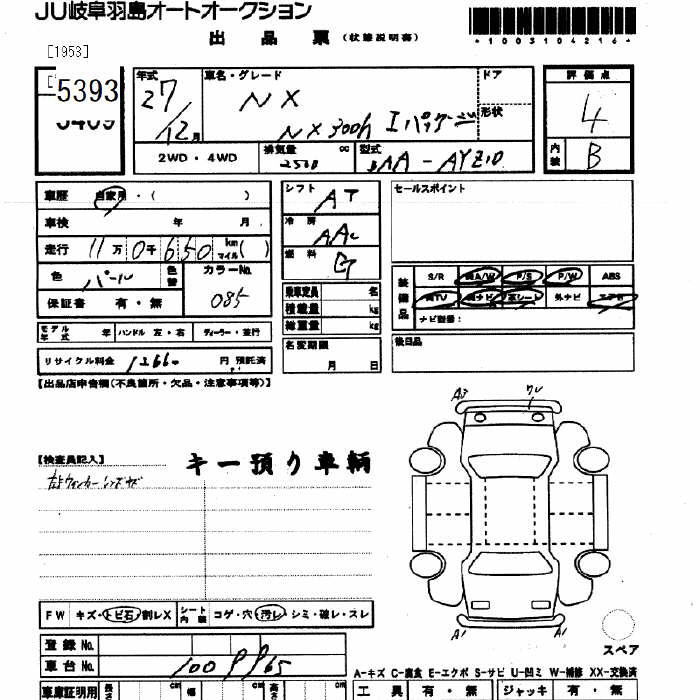 JU岐阜羽島オートオークション
出品票 (状態説明書)
*1003104216*
[1953]
5393
年式 27/12月
車名・グレード NX
NX300h Iパッケージ
ドア
形状
評価点 4
内装 B
2WD・4WD
排気量 2500 cc
型式 DAA-AYZ10
車歴 自家用・( )
車検 年 月
走行 11万0千650 km マイル( )
色 パール
色替
カラーNo. 085
保証書 有・無
モデル年式 年 ハンドル 左・右 ディーラー・並行
リサイクル料金 円 預託済
シフト AT
冷房 AAC
燃料 G
乗車定員 名
積載量 kg
総重量 kg
名変期限 月 日
セールスポイント
装備品
S/R 純A/W P/S P/W ABS
純TV 純ナビ 革シート 外ナビ エアB
ナビ型番:
後日品
【出品店申告欄(不良箇所・欠品・注意事項等)】
【検査員記入】
キー預り車輌
A3
ワレ
A1 A1
スペア
FW キズ・トビ石・割レX
シート内装 コゲ・穴・汚レ・シミ・破レ・スレ
登録No.
車台No.
A-キズ C-腐食 E-エクボ S-サビ U-凹ミ W-補修 XX-交換済
車庫証明用 長さ cm 幅 cm 高さ cm
工具 有・無 ジャッキ 有・無